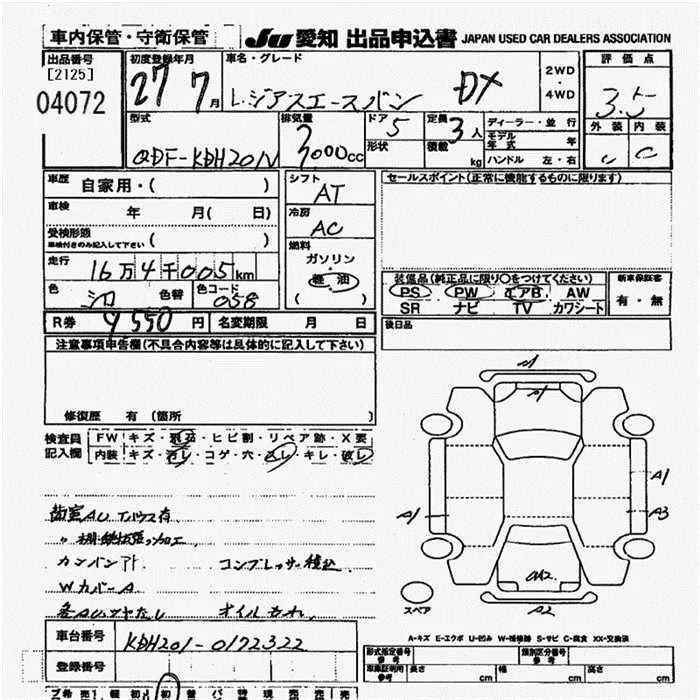 車内保管・守衛保管
JU 愛知 出品申込書 JAPAN USED CAR DEALERS ASSOCIATION
出品番号
[2125]
04072
初度登録年月
27 7月
車名・グレード
レジアスエースバン DX
2WD・4WD
評価点
3.5
外装 内装
C C
型式
QDF-KDH201V
排気量
3000cc
ドア 5
形状
定員 3人
積載 kg
ディーラー・並行
モデル年式 年
ハンドル 左・右
車歴 自家用・( )
車検 年 月( 日)
受検形態
車検付きのみ記入して下さい ( )
走行 16万4千005km
色 シロ 色替
色コード 058
シフト
AT
冷房
AC
燃料
ガソリン
軽油
( )
セールスポイント(正常に機能するものに限ります)
装備品(純正品に限り○をつけてください)
PS PW エアB AW
SR ナビ TV カワシート
新車保証書
有・無
R券 9550円 名変期限 月 日
後日品
注意事項申告欄(不具合内容等は具体的に記入して下さい)
修復歴 有 (箇所 )
検査員記入欄
FW キズ・飛石・ヒビ割・リペア跡・X要
内装 キズ・汚レ・コゲ・穴・スレ・キレ・破レ
カンバンアト コンプレッサー積込
WカバーA
オイルもれ
A1
A1
A3
A2
スペア
A-キズ E-エクボ U-凹み W-補修跡 S-サビ C-腐食 XX-交換済
車台番号 KDH201-0172322
登録番号
型式指定番号 参考
類別区分番号 参考
車庫証明用 参考 長さ cm 幅 cm 高さ cm